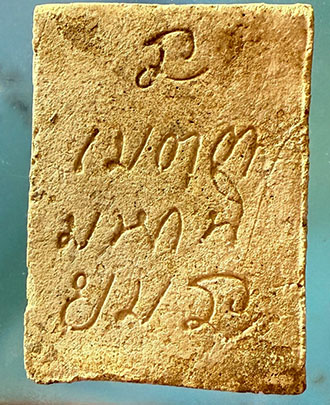 เมตตา
มหานิ
ยม